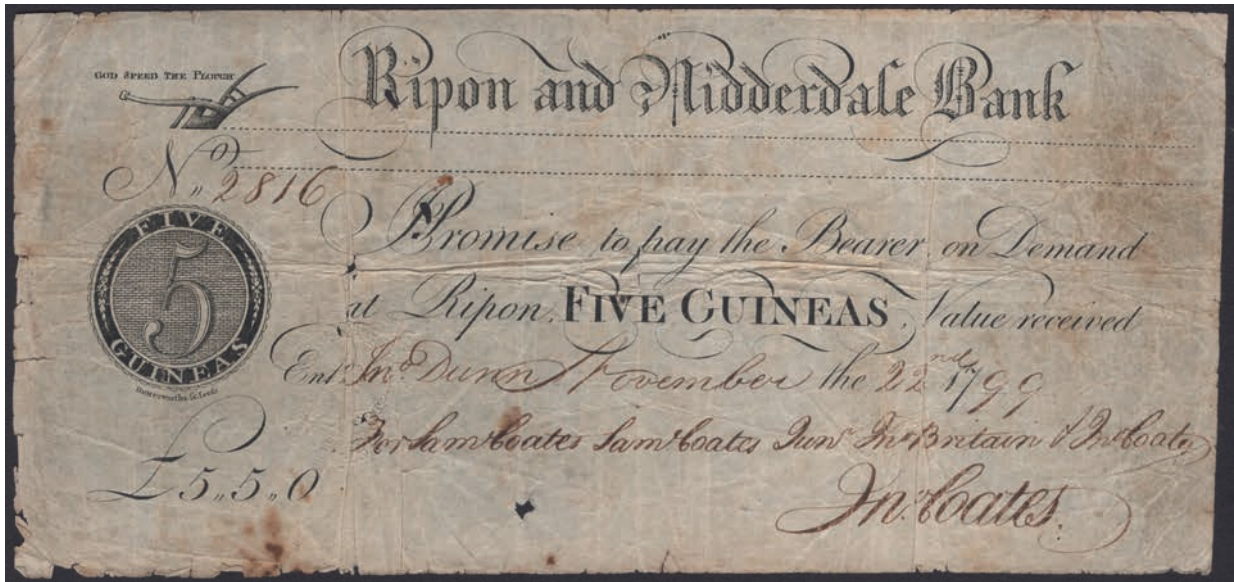 GOD SPEED THE PLOUGH
Ripon and Nidderdale Bank
No 2816
I Promise to pay the Bearer on Demand
at Ripon, FIVE GUINEAS, Value received
FIVE
5
GUINEAS
Entd Jno Dunn November the 22nd 1799
For Saml Coates Saml Coates Junr Jno Britain & Jno Coates
£5,,5,,0
Jno Coates.